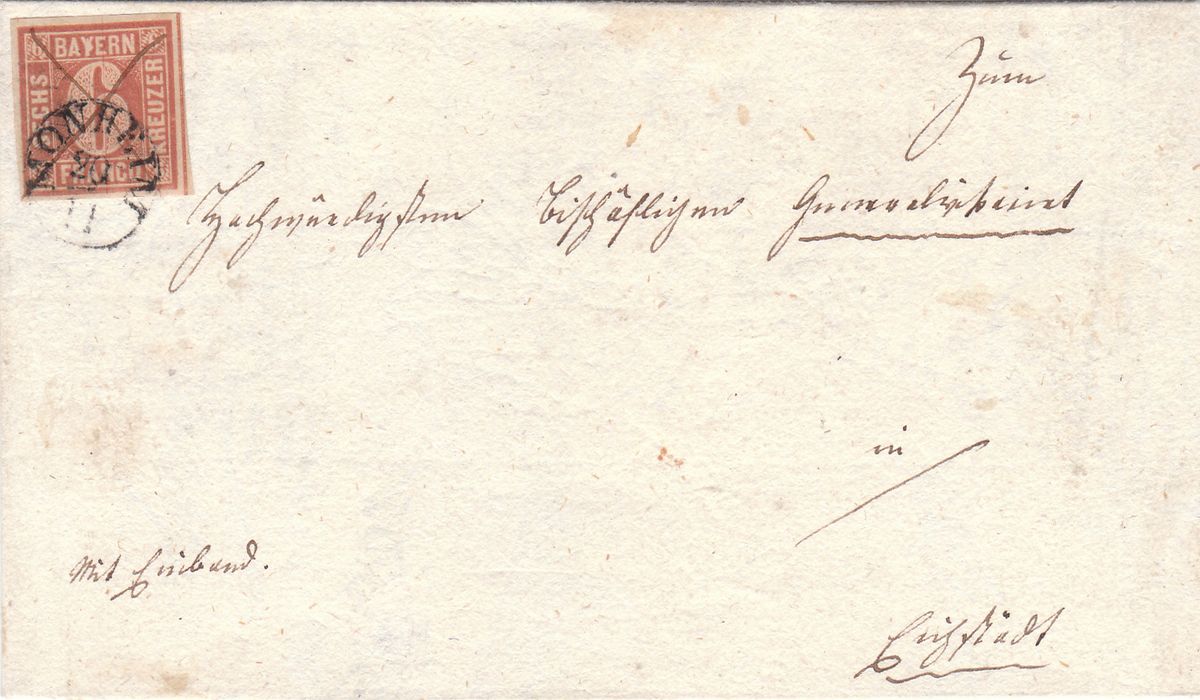 BAYERN
SECHS
KREUZER
6
FRANCO
MONHEIM
20
11
Zum
Hochwürdigsten Bischöflichen Generalvikariat
in
Mit Einband.
Eichstädt